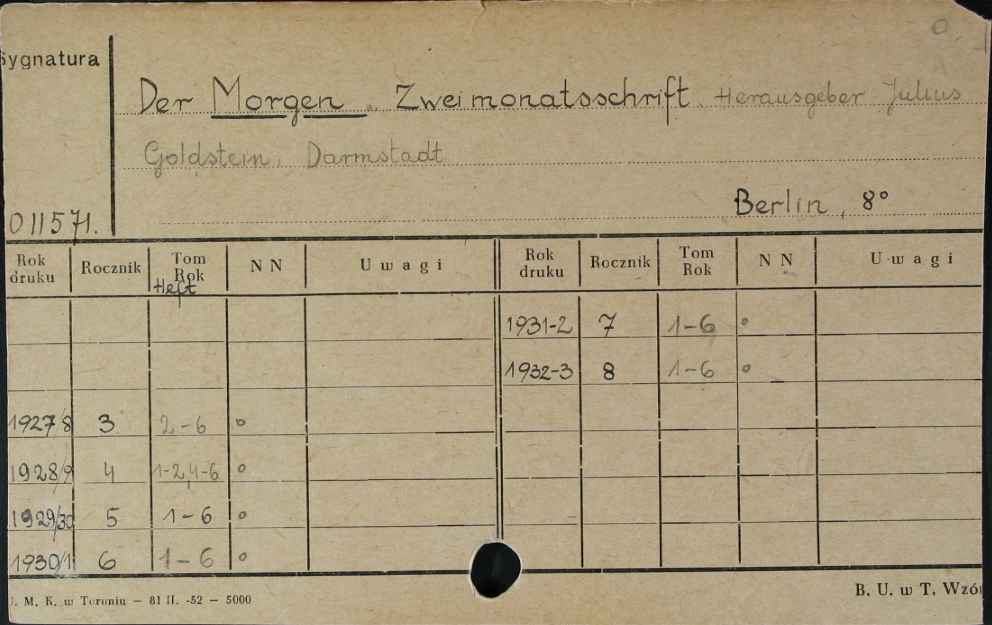 Sygnatura
Der Morgen. Zweimonatsschrift. Herausgeber Julius
Goldstein. Darmstadt
Berlin, 8°
011571.
Rok druku Rocznik Tom Rok Heft NN Uwagi Rok druku Rocznik Tom Rok NN Uwagi
1931-2 7 1-6 °
1932-3 8 1-6 °
1927/8 3 2-6 °
1928/9 4 1-2,4-6 °
1929/30 5 1-6 °
1930/1 6 1-6 °
. M. K. w Toruniu — 81 II. -52 — 5000
B. U. w T. Wzó